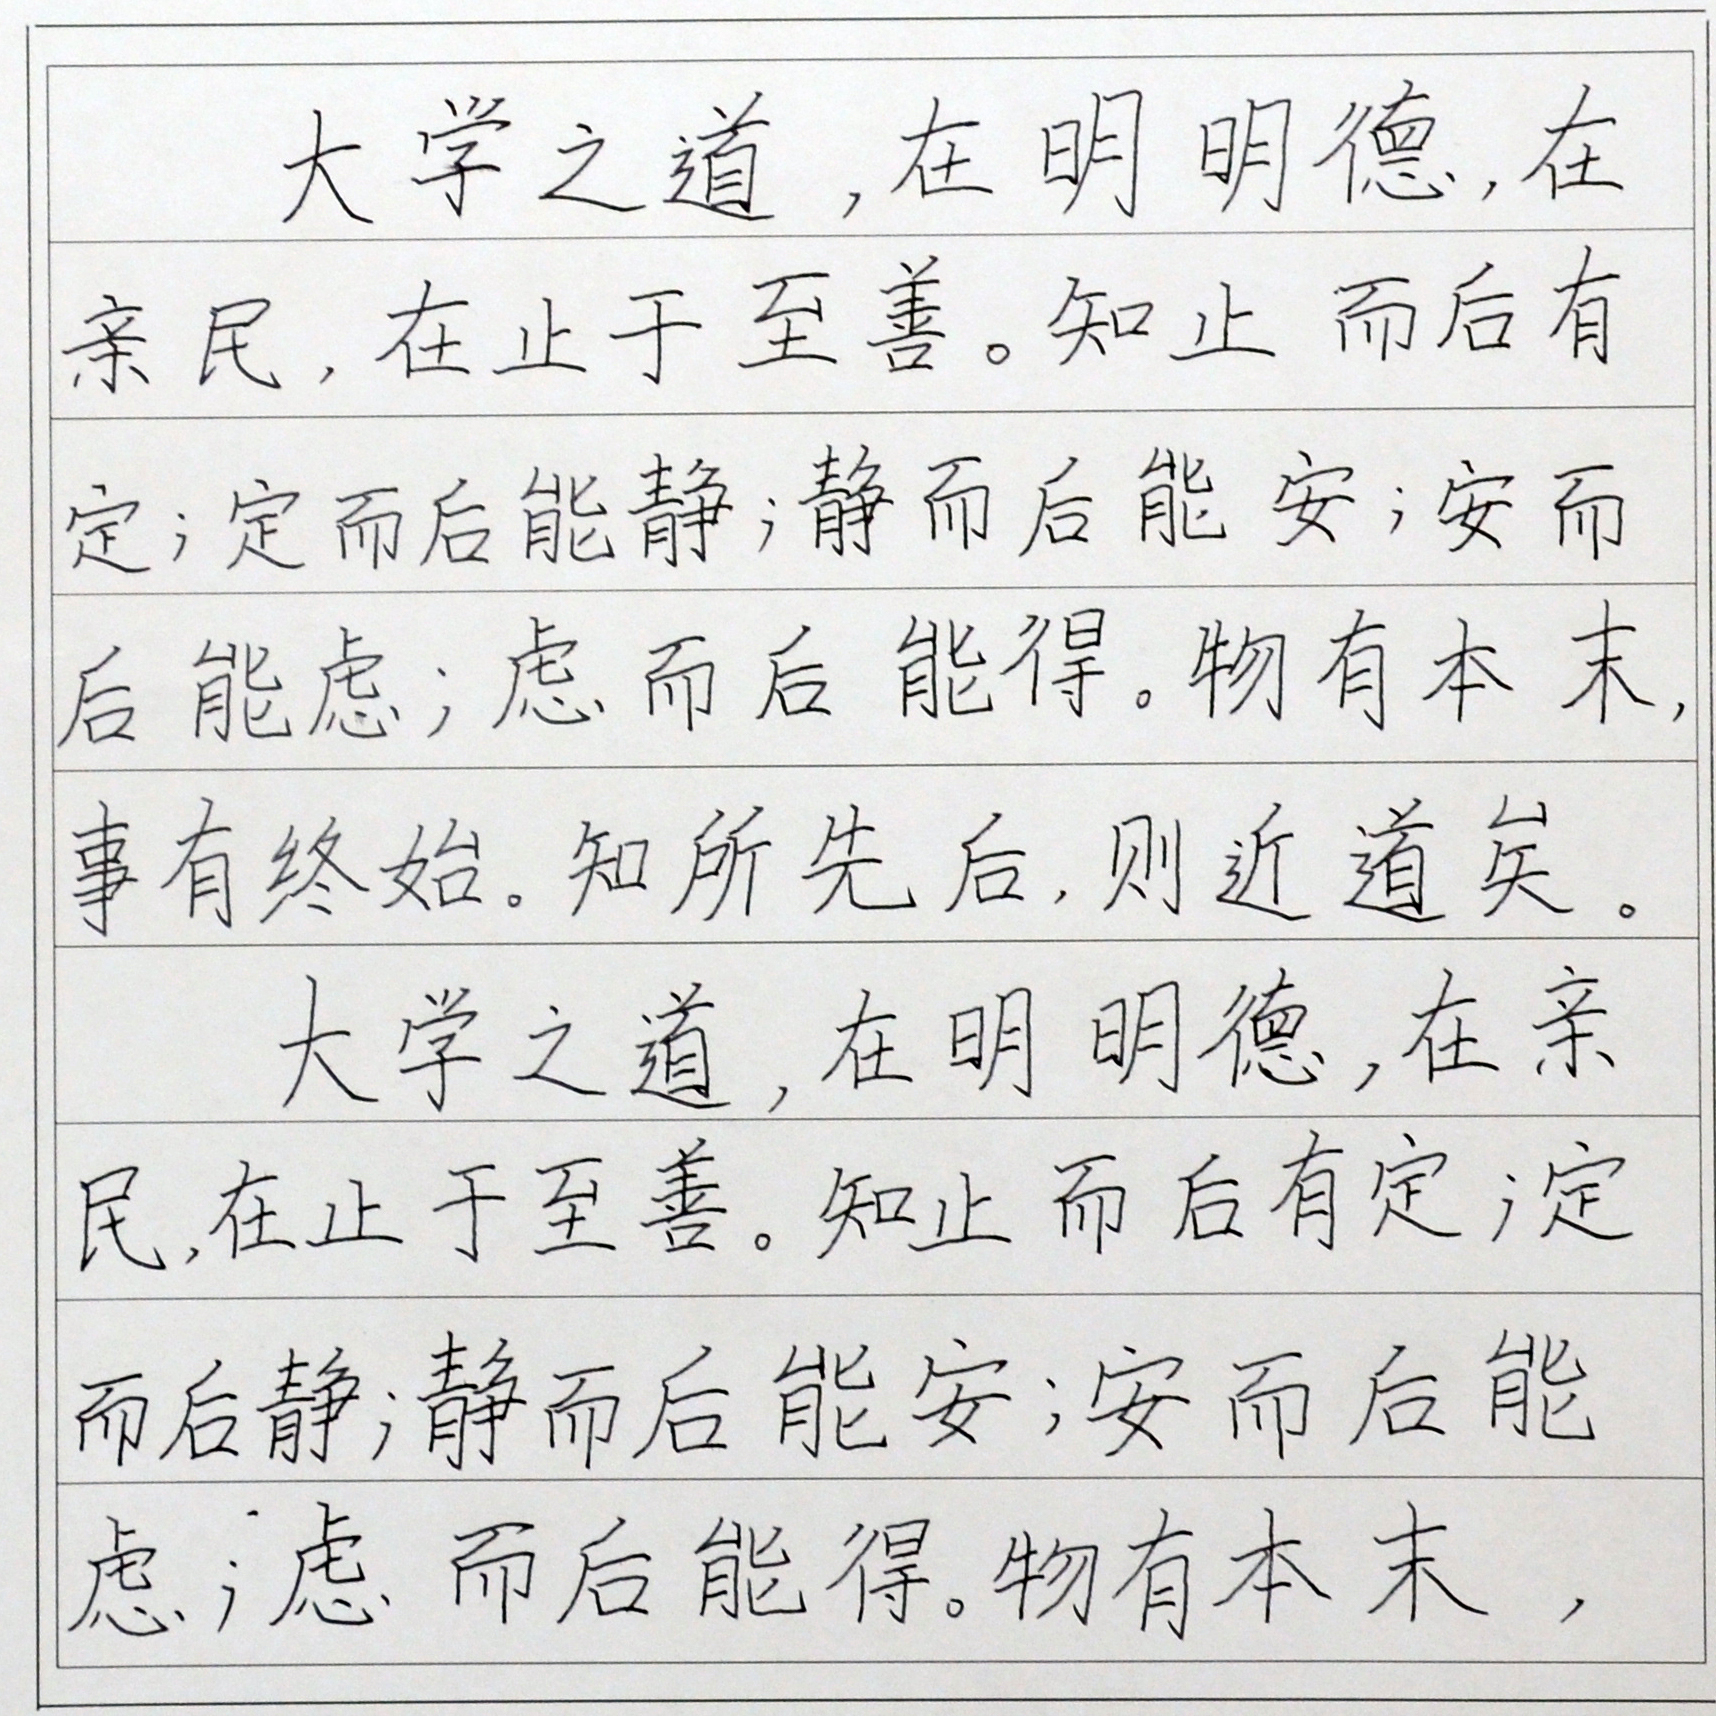 大学之道,在明明德,在
亲民,在止于至善。知止而后有
定;定而后能静;静而后能安;安而
后能虑;虑而后能得。物有本末,
事有终始。知所先后,则近道矣。
大学之道,在明明德,在亲
民,在止于至善。知止而后有定;定
而后静;静而后能安;安而后能
虑;虑而后能得。物有本末,